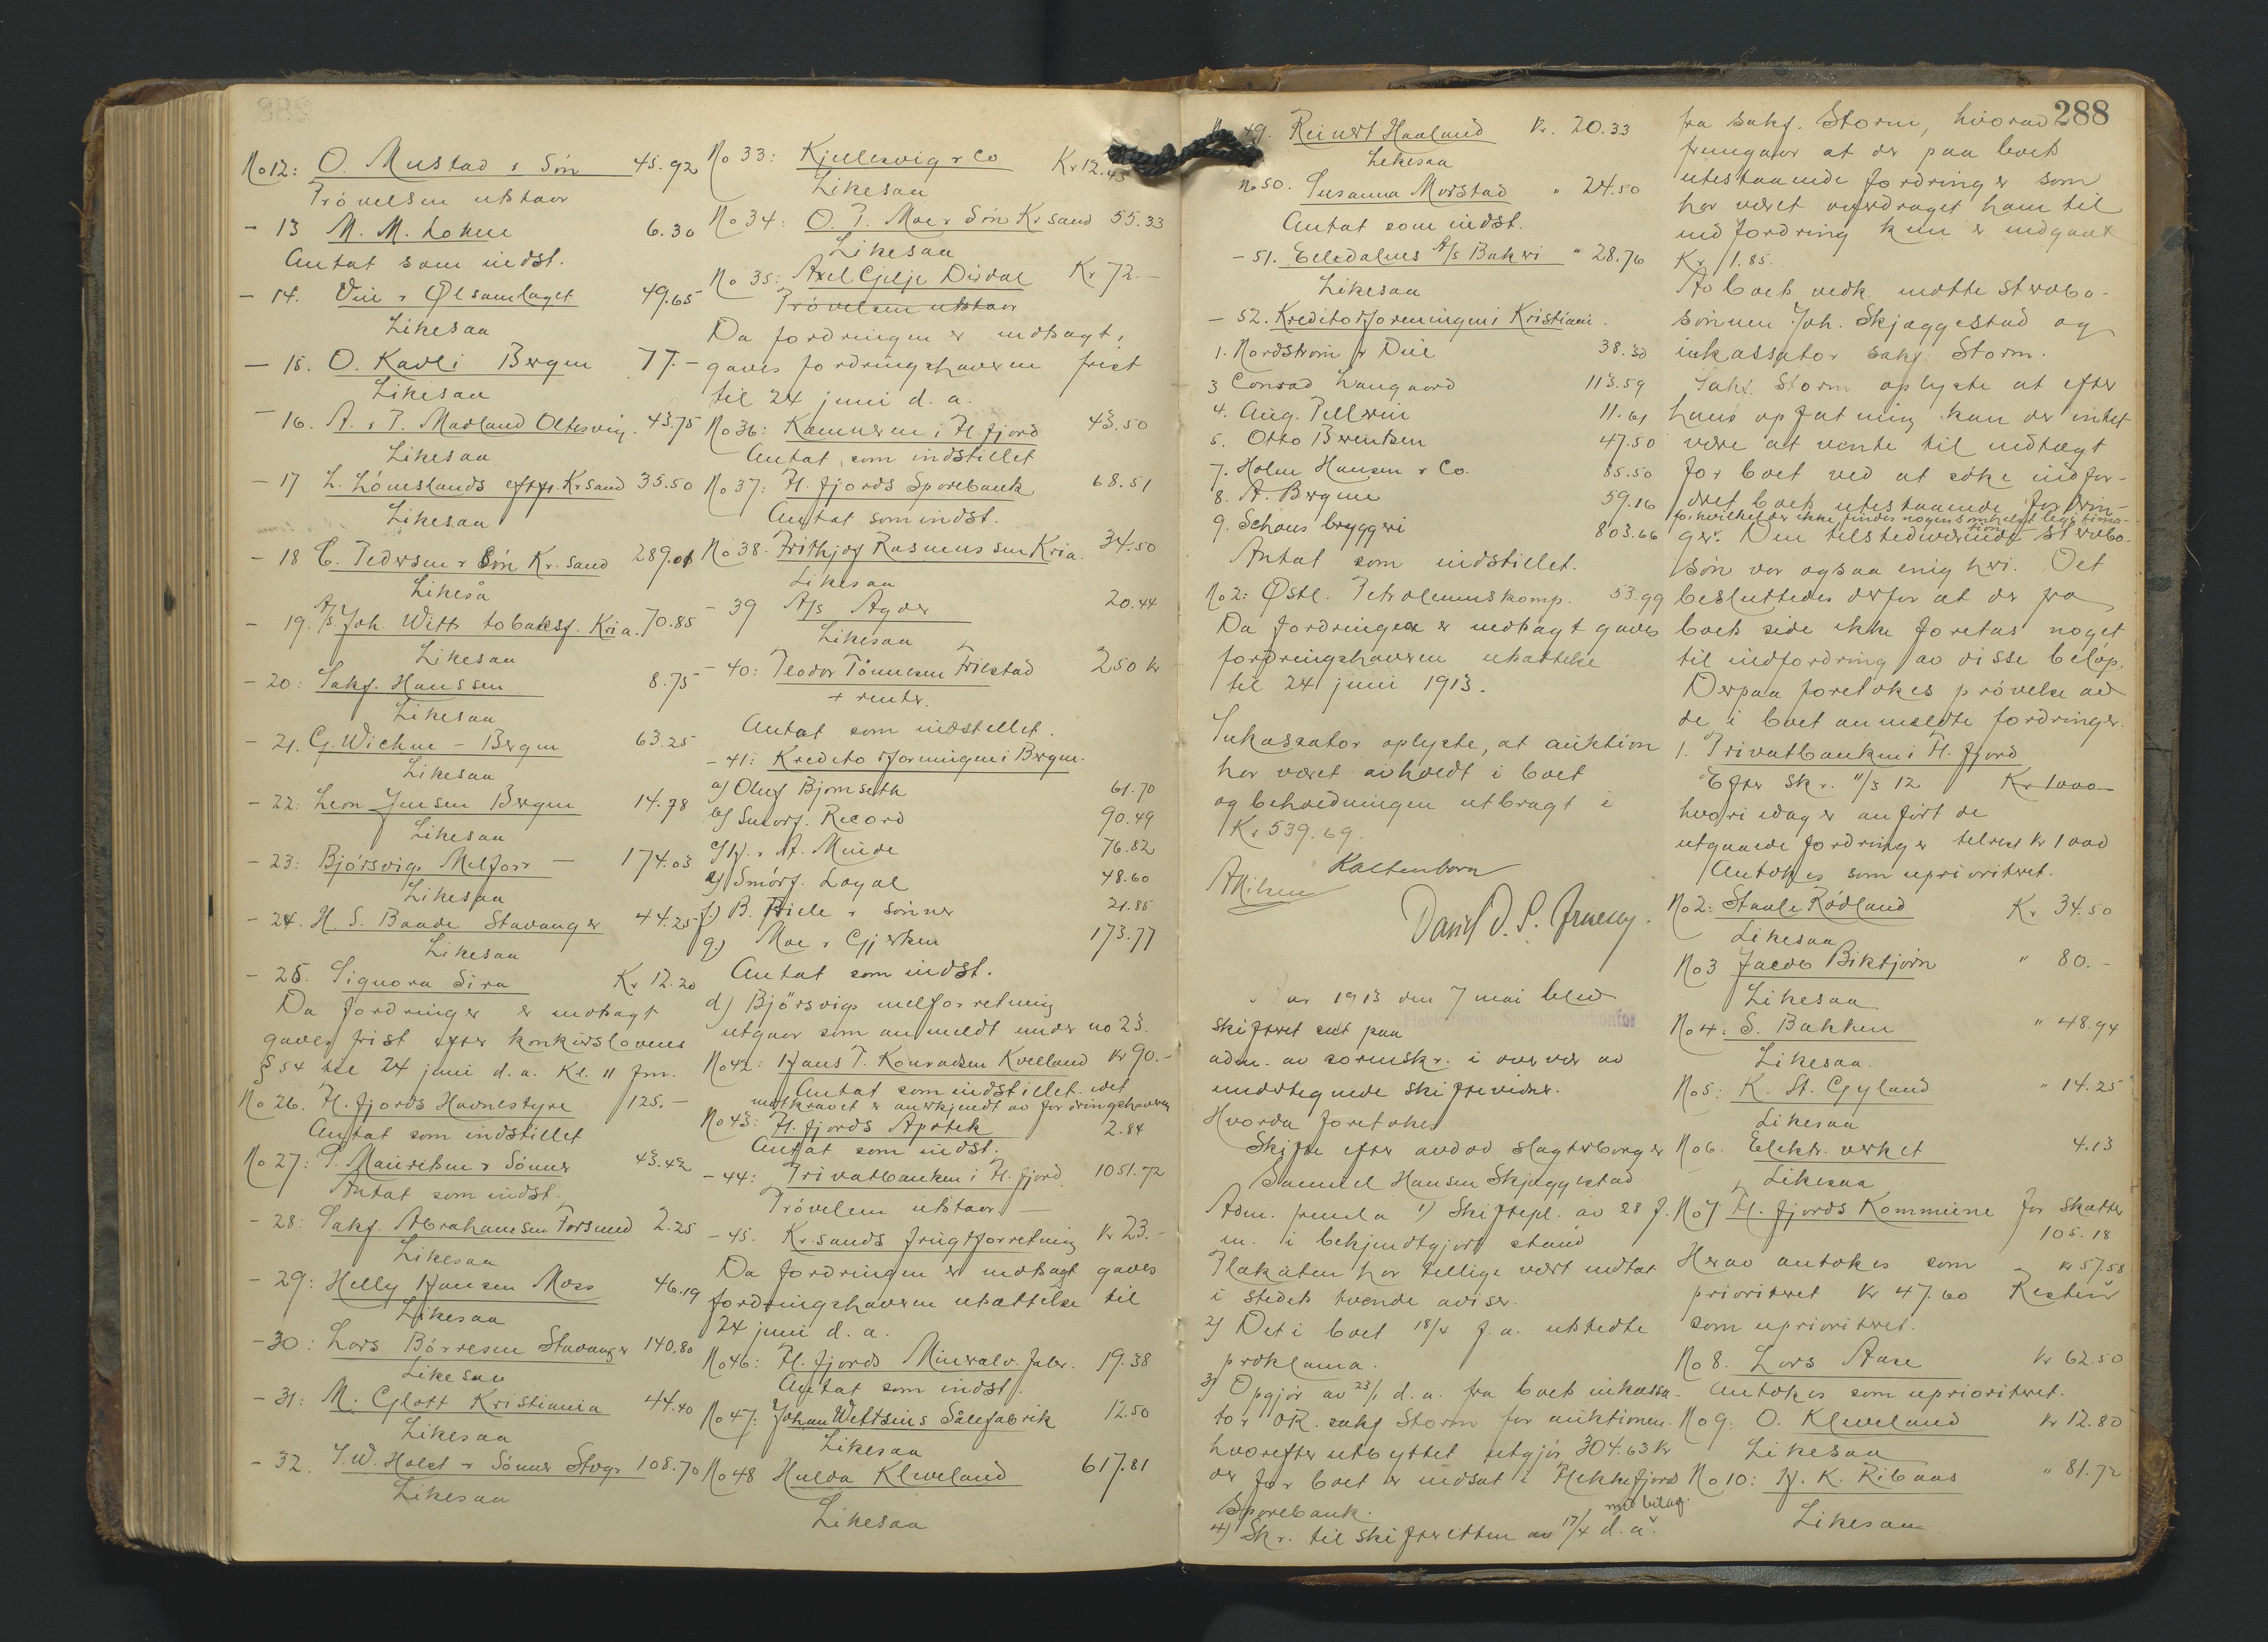 No 12: O. Mustad & Søn 45.92
Prøvelsen utstaar
- 13 M. M. Løken 6.30
Antat som indst.
- 14. Vin & Ølsamlaget 49.65
Likesaa
- 15. O. Kavli Bergen 77.-
Likesaa
- 16. A. & T. Madland Oltesvig. 43.75
Likesaa
- 17 L. Løneslands efterf. Kr.sand 35.50
Likesaa
- 18 C. Pedersen & Søn Kr. sand 289.01
Likeså
- 19. A/s Joh. Witts tobaksf. Kria. 70.85
Likesaa
- 20: Sakf. Hanssen 8.75
Likesaa
- 21. G. Wichne - Bergen 63.25
Likesaa
- 22: Leon Jensen Bergen 14.78
Likesaa
- 23: Bjørsvigs Melforr - 174.03
Likesaa
- 24. H. S. Baade Stavanger 44.25
Likesaa
- 25. Signora Sira Kr 12.20
Da fordringer er motsagt
gaves frist efter konkurslovens
§ 54 til 24 juni d. a. Kl. 11 fm.
No 26. Fl. fjords Havnestyre 125.-
Antat som indstillet
No 27: S. Mauritsen & Sønner 43.42
Antat som indst.
- 28: Sakf. Abrahamsen Forsund 2.25
Likesaa
- 29: Helly Hansen Moss 46.19
Likesaa
- 30: Lars Børresen Stavanger 140.80
Likesaa
- 31: M. Glott Kristiania 44.40
Likesaa
- 32. T. W. Holst & Sønner Stvgr 108.70
Likesaa
No 33: Kjellesvig & Co Kr 12.45
Likesaa
No 34: O. T. Moe & Søn Kr sand 55.33
Likesaa
No 35: Axel Gjelje Disdal Kr 72.-
Prøvelsen utstaar
Da fordringen er motsagt,
gaves fordringshaveren frist
til 24 juni d. a.
No 36: Kæmneren i Fl. fjord 43.50
Antat som indstillet
No 37: Fl. fjords Sparebank 68.51
Antat som indst.
No 38. Frithjof Rasmussen Kria. 34.50
Likesaa
- 39 A/s Agder 20.44
Likesaa
- 40: Teodor Tønnesen Trilstad 250 kr
+ renter.
Antat som indstillet.
- 41: Kreditorforeningen i Bergen.
a) Oluf Bjørnseth 61.70
b) Smørf. Record 90.49
c) H. & A. Minde 76.82
e) Smørf. Loyal 48.60
f.) B. Friele & sønner 21.85
g.) Moe & Gjerken 173.77
Antat som indst.
d) Bjørsvigs melforretning
utgaar som anmeldt under no 23.
No 42: Hans T. Konradsen Kvelland Kr 90.-
Antat som indstillet. idet
motkravet er anerkjendt av fordringshaveren
No 43: Fl. fjords Apotek 2.84
Antat som indst.
- 44: Privatbanken i Fl. fjord 1051.72
Prøvelsen utstaar. -
- 45. Kr.sands frugtforretning Kr 23.-
Da fordringen er motsagt gaves
fordringshaveren utsættelse til
24 juni d. a.
No 46: Fl. fjords Mineralv. fabr. 19.38
Antat som indst.
No 47: Johan Wettsius Sålefabrik 12.50
Likesaa
No 48 Hulda Kleveland 617.81
Likesaa
No 49. Reinert Haaland Kr. 20.33
Likesaa
No 50. Susanna Morstad " 24.50
Antat som indst.
- 51. Elledalens A/s Bakeri " 28.76
Likesaa
- 52. Kreditorforeningen i Kristiani.
1. Nordstrøm & Due 38.30
3 Conrad Langaard 113.59
4. Aug. Pellerin 11.61
5. Otto Berentsen 47.50
7. Holm Hansen & Co. 85.50
8. A. Bergene 59.16
9. Schous bryggeri 803.66
Antat som indstillet.
No 2: Østl. Petroleumskomp. 53.99
Da fordringen er motsagt gaves
fordringshaveren utsættelse
til 24 juni 1913.
Inkassator oplyste, at auktion
har været avholdt i boet
og beholdningen utbragt i
Kr 539.69.
Kaltenborn
ANilsen
David D. S.
Aar 1913 den 7 mai blev
skifteret sat paa
adm. av sorenskr. i overvær av
undertegnede skiftevidner.
Hvorda foretokes
Skifte efter avdød slagterborger
Samuel Hansen Skjeggestad
Adm. fremla 1) Skiftepl. av 28 f.
m. i bekjendtgjort stand
Plakaten har tillige vært indtat
i stedets tvende aviser.
2) Det i boet 18/4 f. a. utstedte
proklama.
3) Opgjør av 23/1 d. a. fra boets inkassa-
tor OR. sakf Storm for auktionen.
hvorefter utbyttet utgjør 304.63 Kr
der for boet er indsat i Flekkefjord
Sparebank.
4) Skr. til skifteretten av 17/4 d. a. med bilag.
288
fra sakf. Storm, hvorav
fremgaar at der paa boets
utestaaende fordringer som
har været overdraget ham til
indfordring kun er indgaat
Kr 11.85.
Av boets vedk. møtte stervbo-
sønnen Joh. Skjæggestad og
inkassator sakf. Storm.
Sakf. Storm oplyste at efter
hans opfatning kan der intet
være at vente til indtægt
for boet ved at søke indfor-
dret boets utestaaende fordrin-
for hvilket der ikke findes nogensomhelst legitima-
tion
ger. Den tilstedeværende stervbo-
søn var ogsaa enig heri. Det
besluttedes derfor at der fra
boets side ikke foretas noget
til indfordring av disse beløp.
Derpaa foretokes prøvelse av
de i boet anmeldte fordringer.
1. Privatbanken i Fl. fjord
Efter skr. 11/3 12 Kr 1000
hvori idag er anført de
utgaaede fordringer tilrest kr 1000
Antokes som uprioritert.
No 2: Staale Rødland Kr 34.50
Likesaa
No 3 Jacob Biktjørn " 80.-
Likesaa
No 4: S. Bakken " 48.94
Likesaa.
No 5: K. St. Gyland " 14.25
Likesaa
No 6. Elektr. verket 4.13
Likesaa
No 7 Fl. fjords Kommune for skatter
105.18
Herav antokes som kr 57.58
prioritert Kr 47.60 Resten
som uprioritert.
No 8. Lars Aase Kr 62.50
Antokes som uprioritert.
No 9: O. Kleveland Kr 12.80
Likesaa
No 10: H. K. Ribaas " 81.72
Likesaa